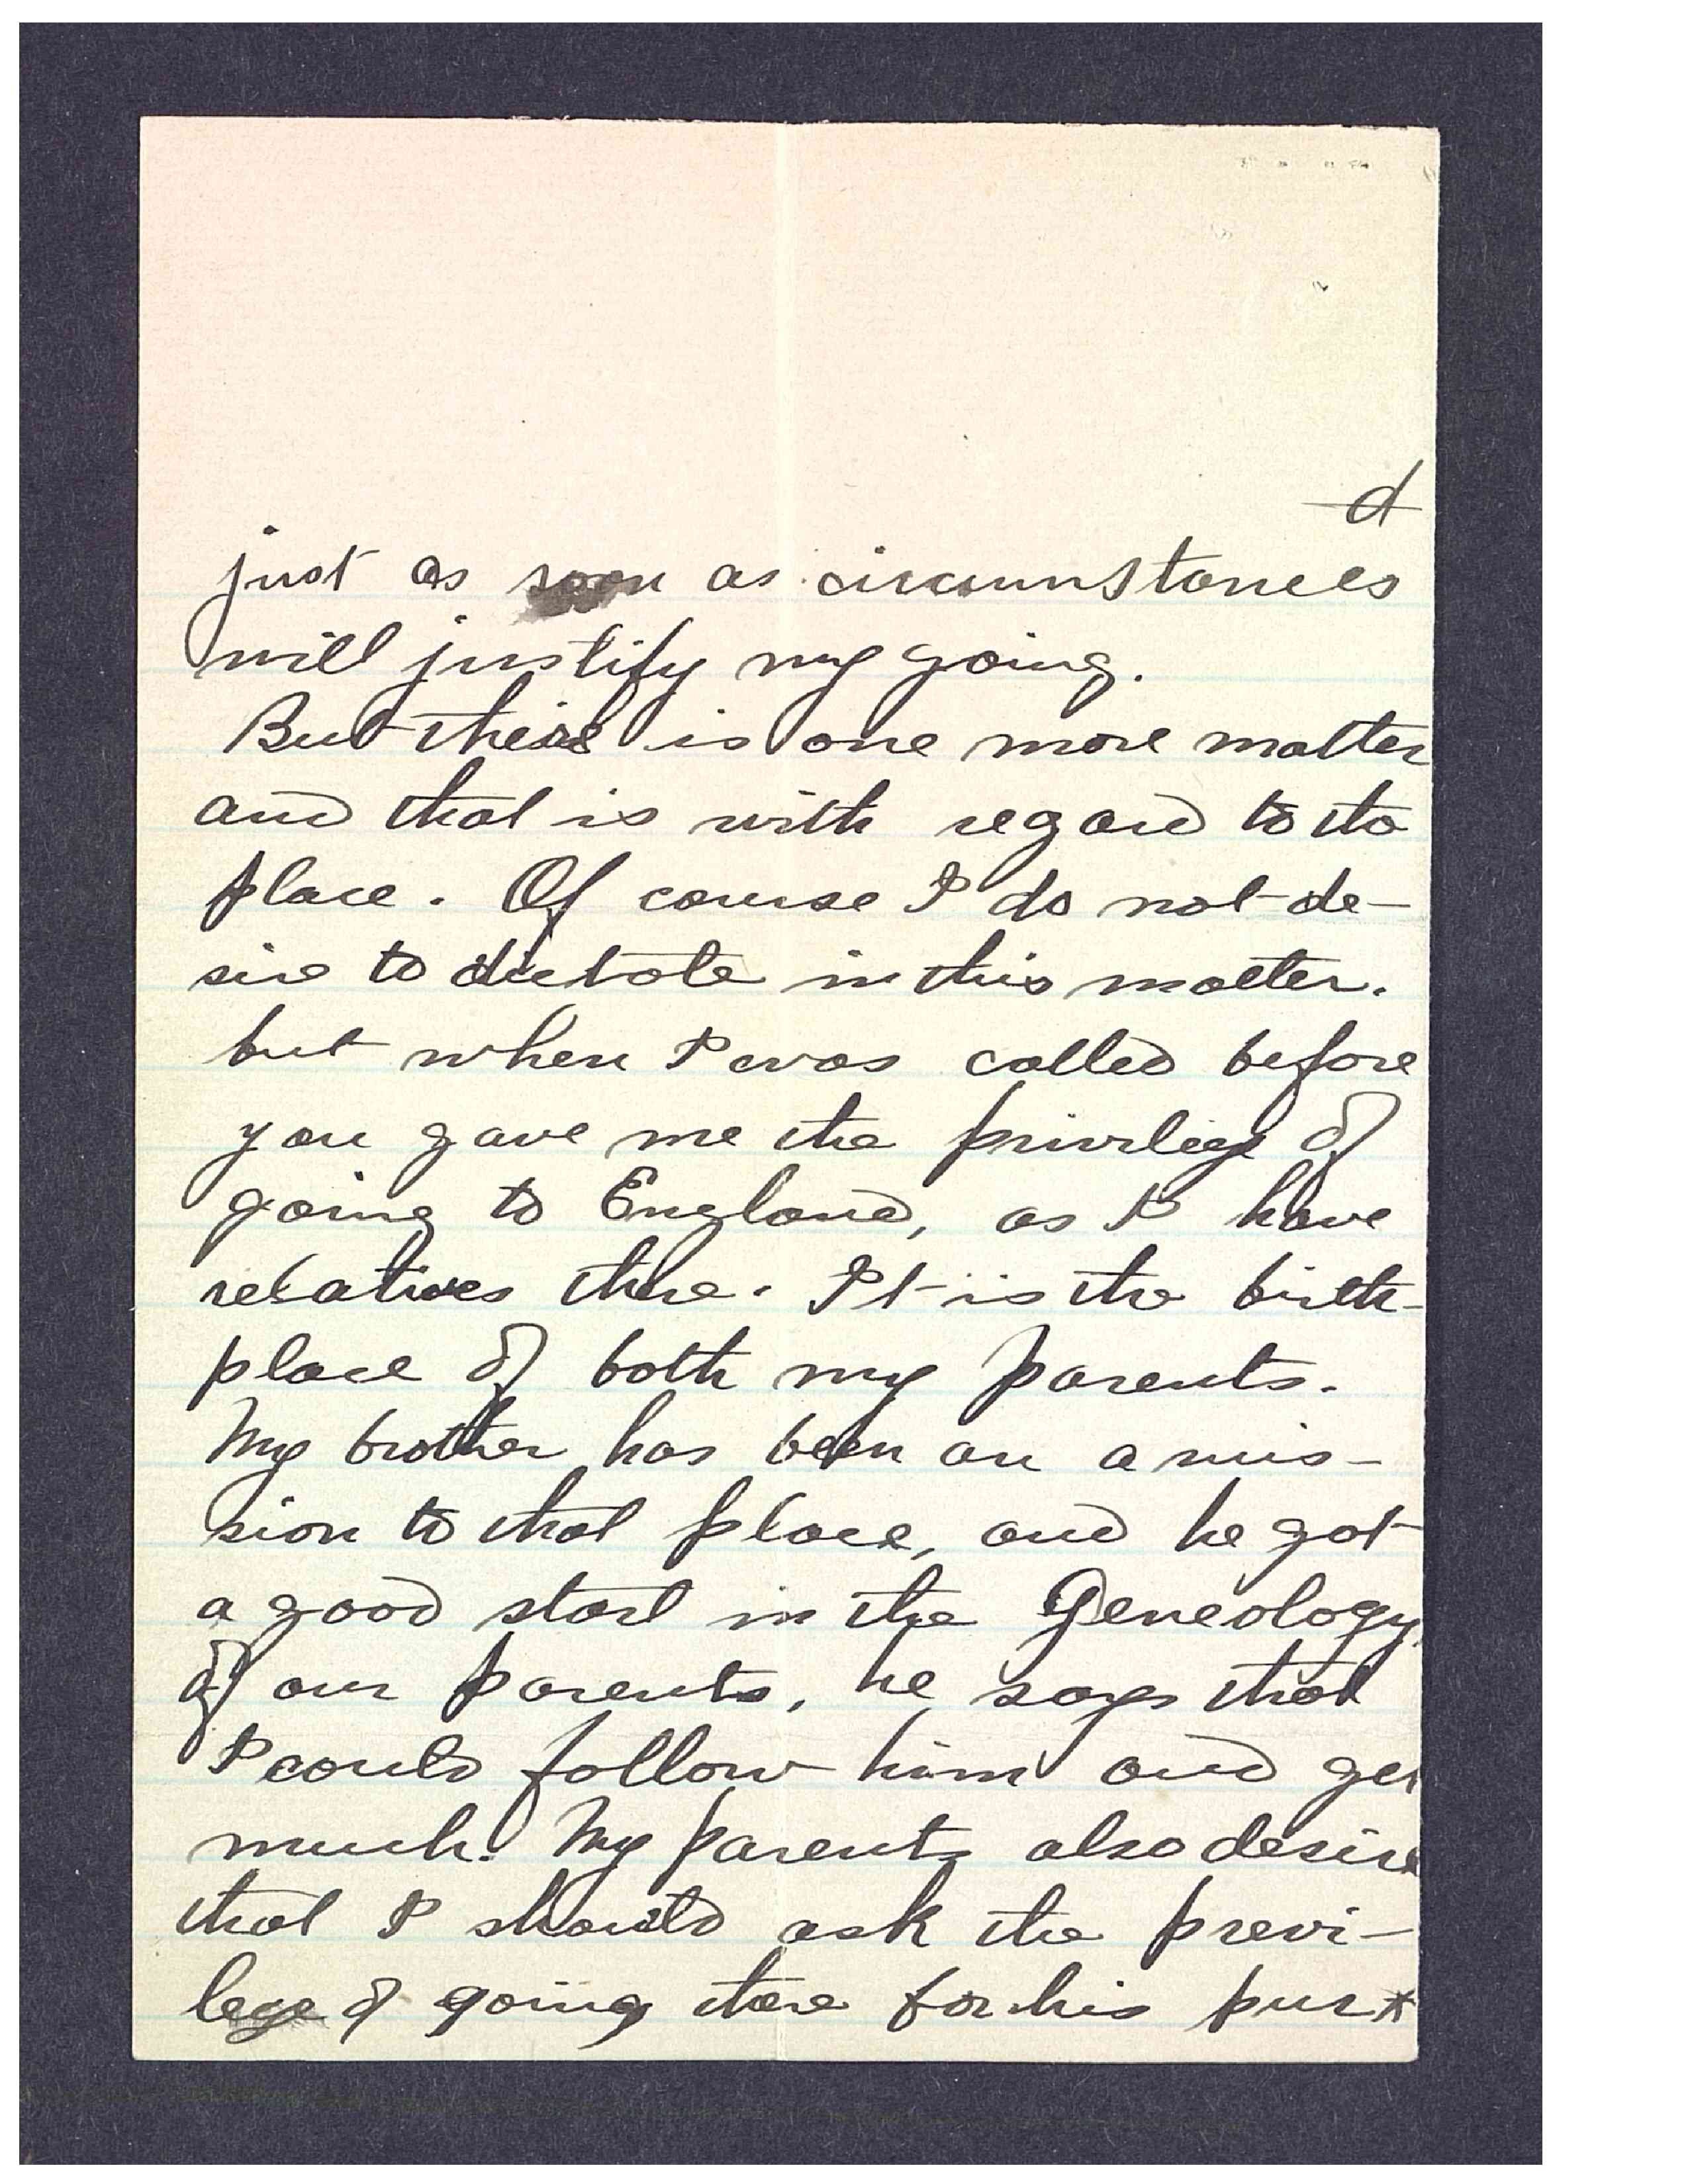 d
just as soon as circumstances
will justify my going.
But there is one more matter
and that is with regard to the
place. Of course I do not de-
sire to dictate in this matter.
but when I was called before
you gave me the privilege of
going to England, as I have
relatives there. It is the birth-
place of both my parents.
My brother has been on a mis-
sion to that place, and he got
a good start in the Geneology
of our parents, he says that
I could follow him and get
much. My parents also desire
that I should ask the previ-
lege of going there for this pur